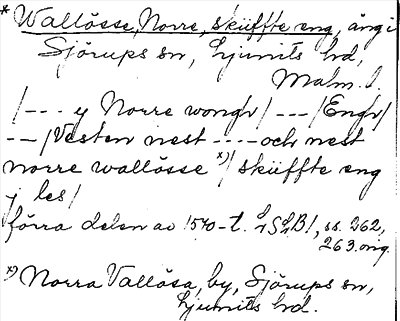 * Wallösse, Norre, sküffte eng, äng i
Sjörups sn, Ljunits hd,
Malm. l.
/--- y Norre wongr/ ---/Engr/
--/Vesten nest ---- och nest
norre wallösse x)/ sküffte eng
j les/
förra delen av 1570-t. LSLB1, ss. 262,
263. orig.
x) Norra Vallösa, by, Sjörups sn,
Ljunits hd.